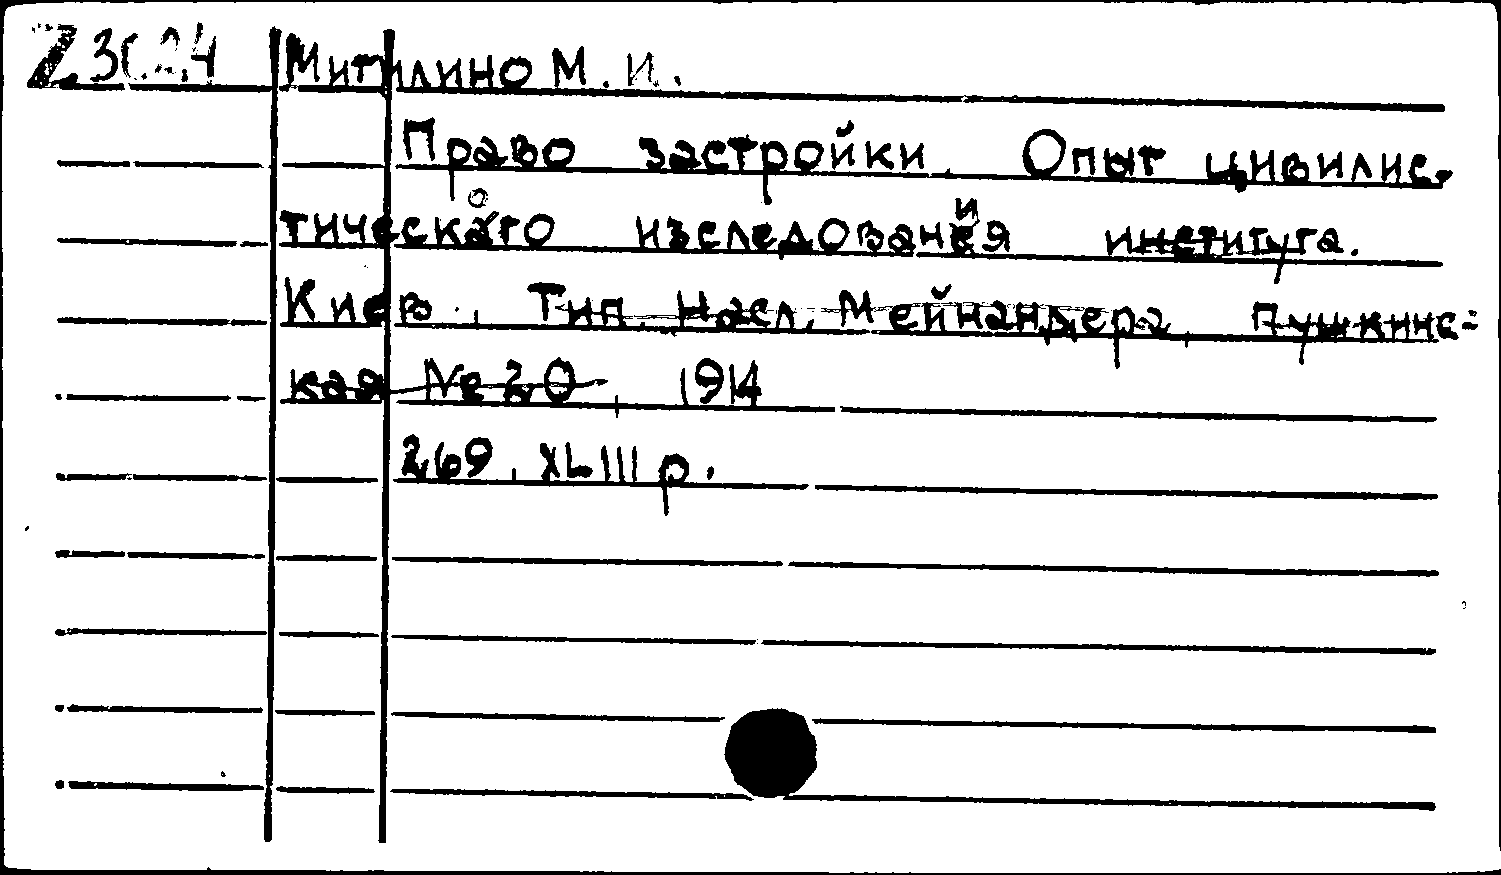 Z3024 Митилино М. И.
Право застройки. Опыт цивилис-
тическаго изследования института.
Киев, Тип. Насл. Мейнандера, Пушкинс=
кая № 20, 1914
269, XLIII p.